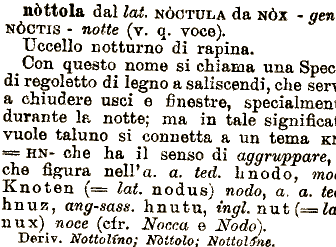 nòttola dal lat. NÒCTULA da NÒX - gen
NÒCTIS - notte (v. q. voce).
Uccello notturno di rapina.
Con questo nome si chiama una Spec
di regoletto di legno a saliscendi, che serv
a chiudere usci e finestre, specialmen
durante la notte; ma in tale significat
vuole taluno si connetta a un tema KN
= HN- che ha il senso di aggruppare,
che figura nell'a. a. ted. hnodo, mod
Knoten (= lat. nodus) nodo, a. a. te
hnuz, ang-sass. hnutu, ingl. nut (= la
nux) noce (cfr. Nocca e Nodo).
Deriv. Nottolíno; Nòttolo; Nottolóne.